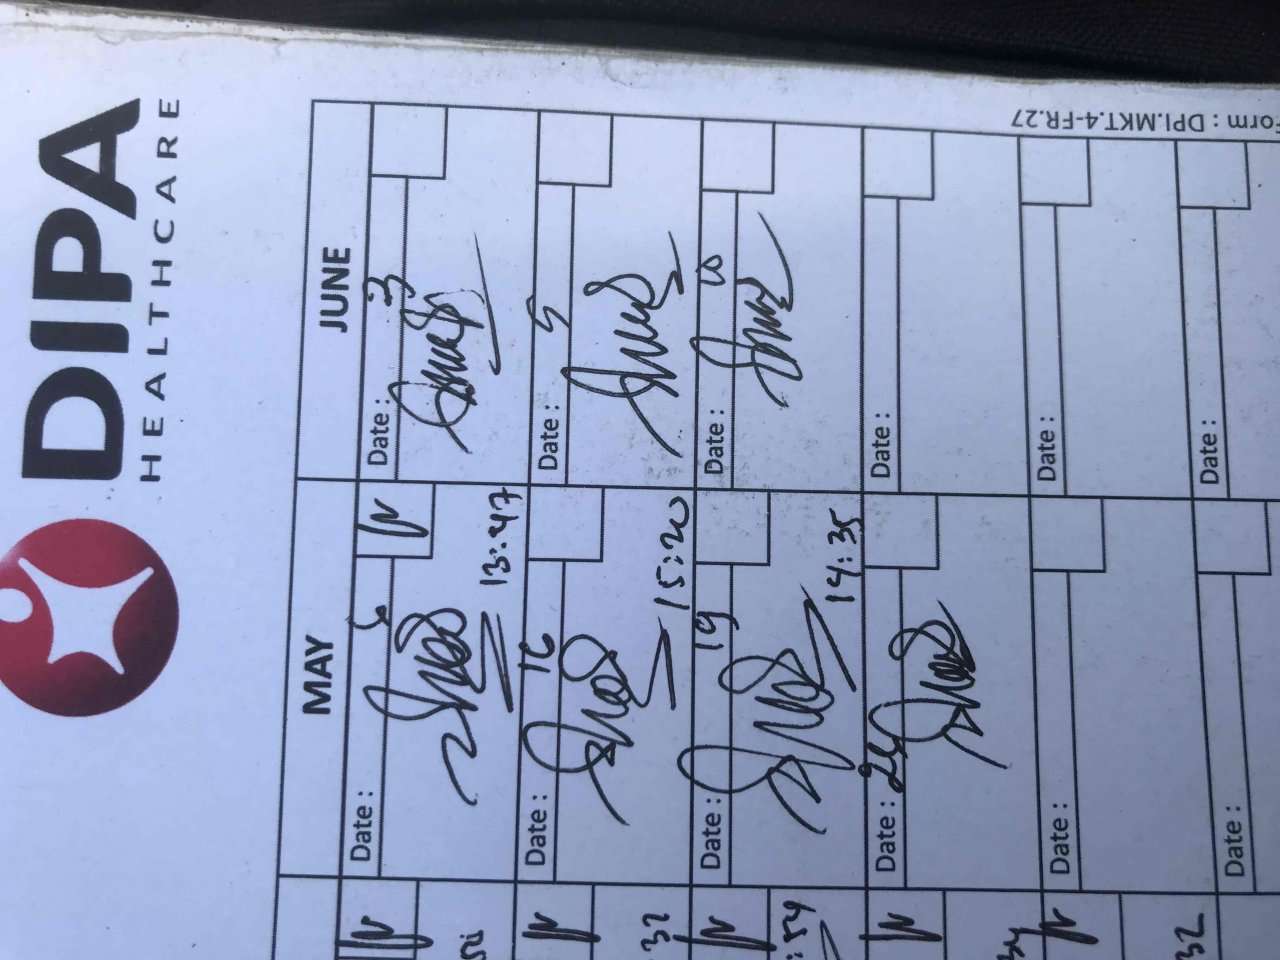 DIPA
HEALTHCARE
Form : DPI.MKT.4-FR.27
MAY
JUNE
Date :
Date : 3
13:47
Date : 16
Date : 5
15:20
Date : 19
Date : 10
14:35
Date : 24
Date :
Date :
Date :
Date :
Date :
32
:54
32